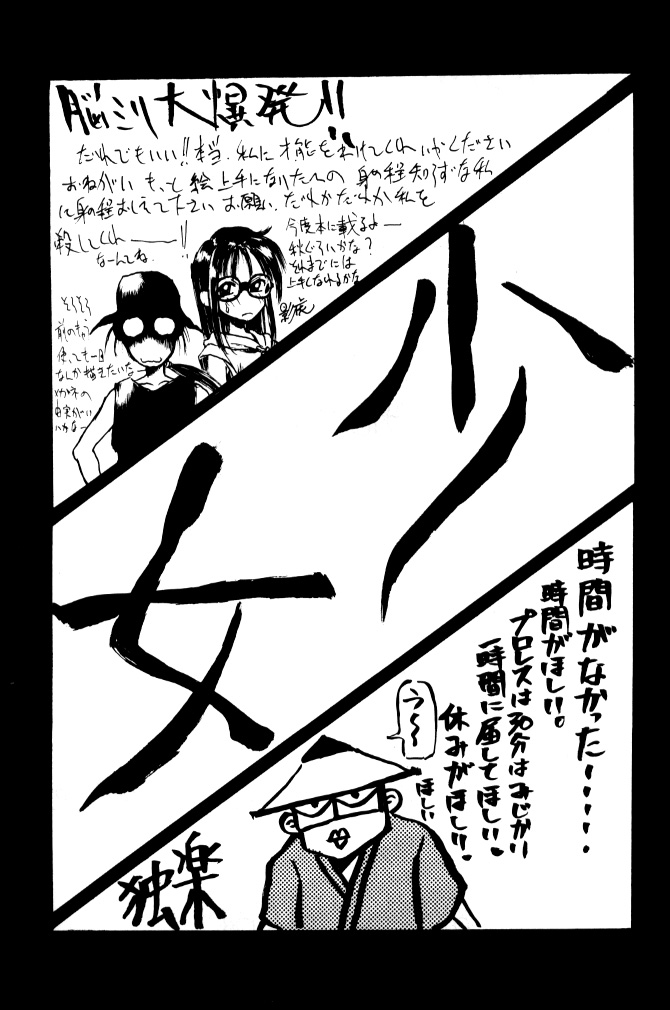 脳ミソ大爆発!!
だれでもいい!!本当、私に才能をわけてくれいやください
おねがい もっと絵上手になりたいへの 身の程知らずな私
に身の程おしえて下さい お願い、だれかだれか私を
殺してくれ――!!
なーんてね、
今度本に載るよー
秋ぐらいかな?
それまでには
上手くなれるかな
影虎
そろそろ
なんか描きたいな
少女
時間がなかった・・・・・・
時間がほしい。
プロレスは30分はみじかい
一時間に届してほしい。
休みがほしい。
ほしい
う〜〜
独楽